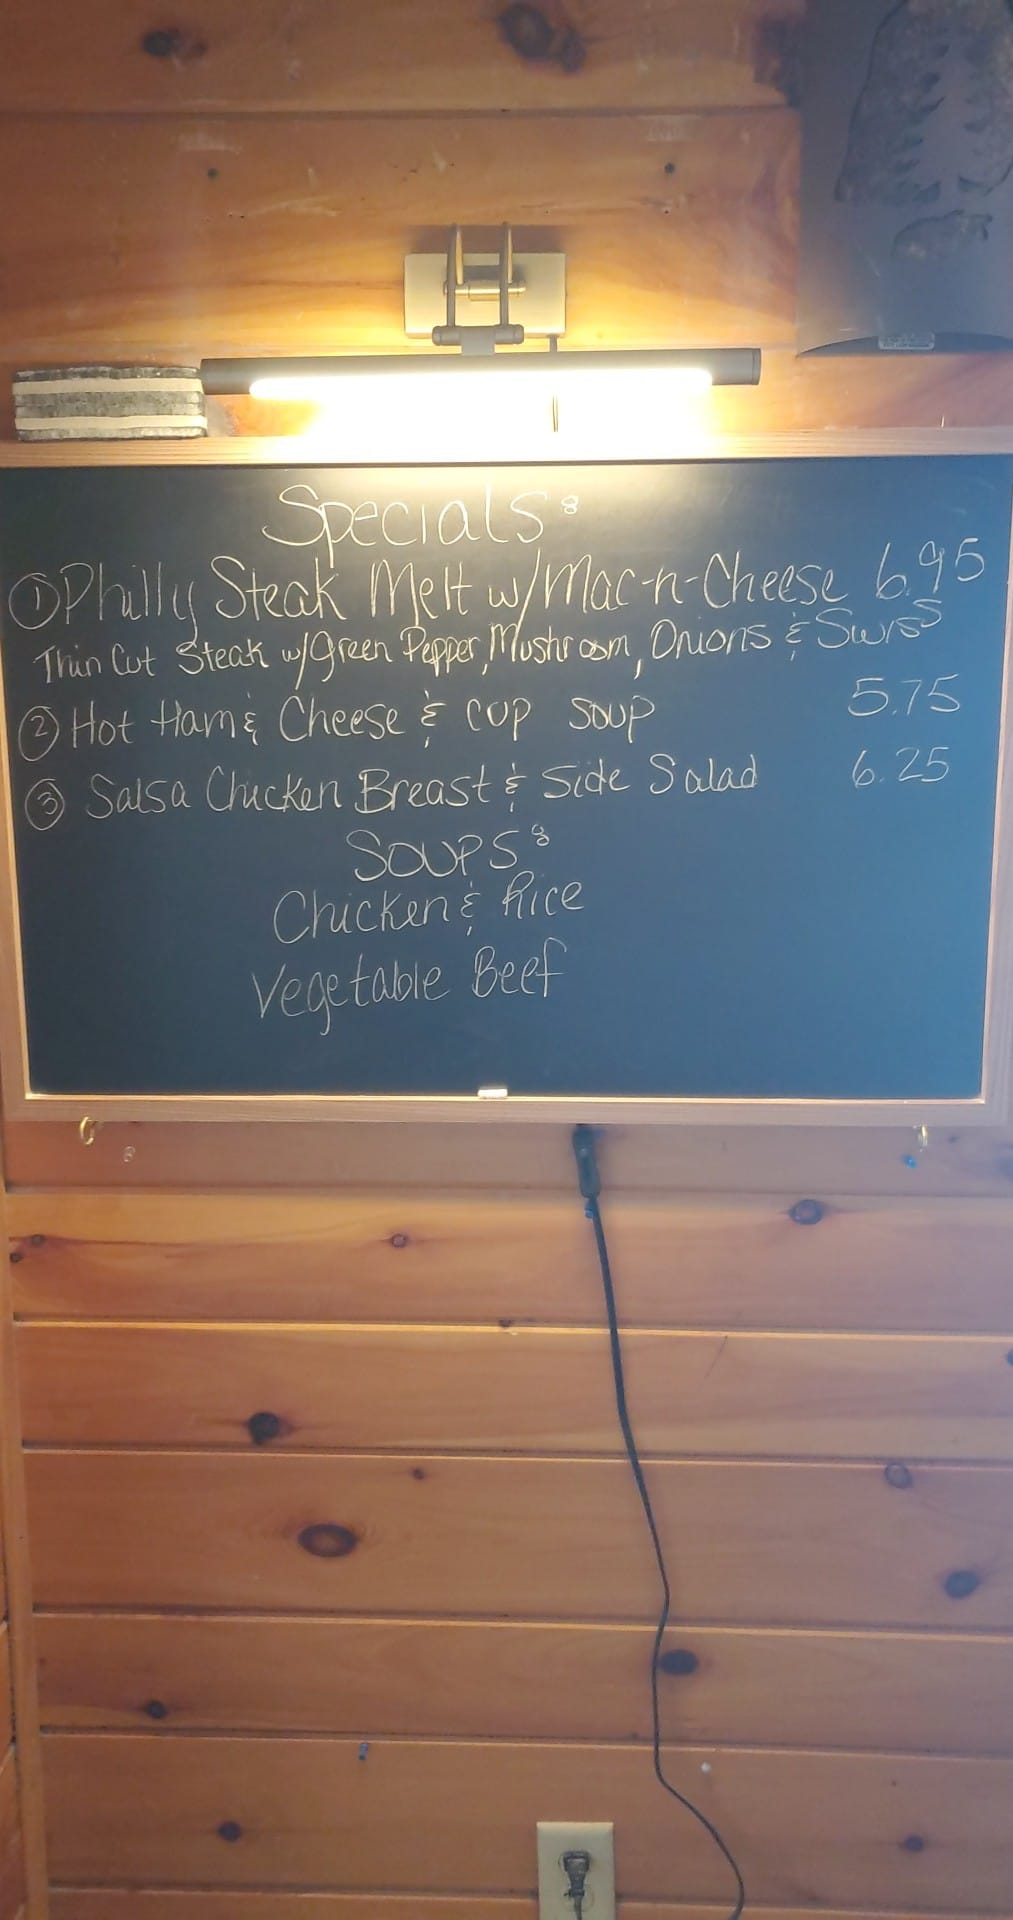 Specials:
① Philly Steak Melt w/Mac-n-Cheese 6.95
Thin Cut Steak w/Green Pepper, Mushroom, Onions & Swiss
② Hot Ham & Cheese & cup soup 5.75
③ Salsa Chicken Breast & Side Salad 6.25
Soups:
Chicken & Rice
Vegetable Beef